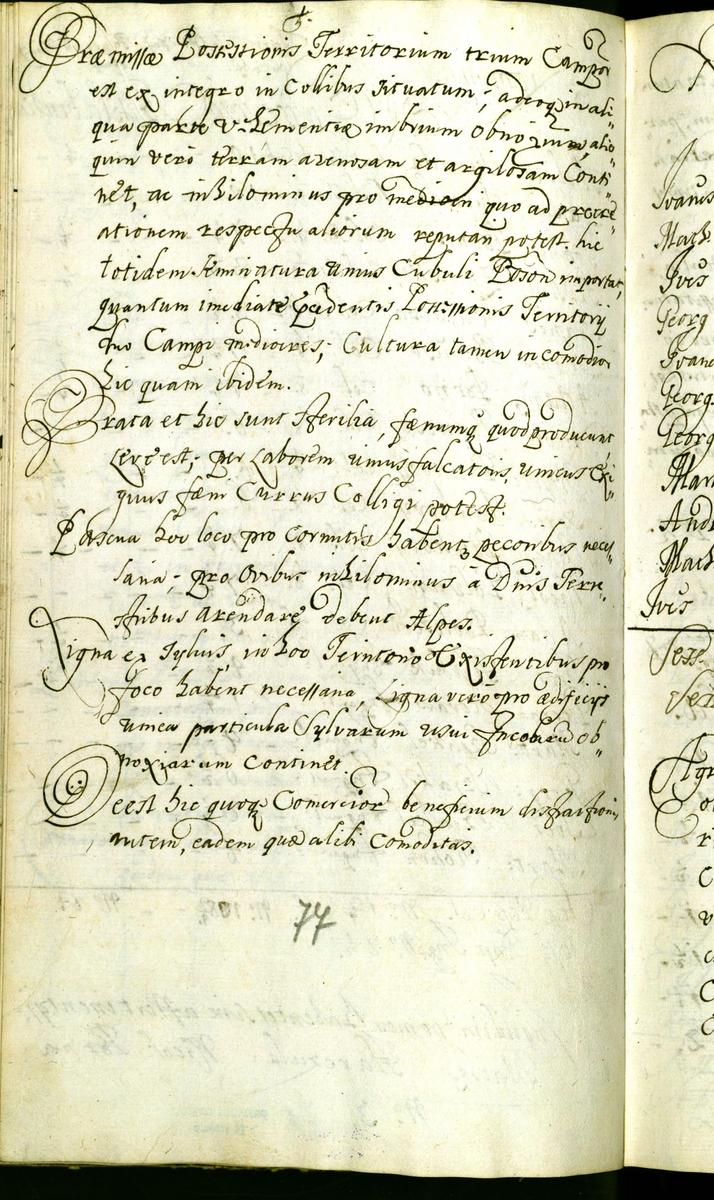 Præmissæ Possessionis Territorium trium Campor
est ex integro in Collibus situatum; adeoq in ali"
qua parte vehementiæ imbrium obnoxium, alio"
quin vero terram arenosam et argilosam Conti"
net, ac nihilominus pro mediocri quo ad procre"
ationem respectu aliorum reputari potest. hic
totidem seminatura unius Cubuli Poson importat,
quantum imediate præcedentis Possessionis Territorij
duo Campi mediocres; Cultura tamen incomodior
hic quam ibidem.
Prata et hic sunt sterilia, fænumq quod producunt
leve est; per Laborem unius falcatoris, unicus exi"
guus fæni Currus Colligi potest.
Pascua hoc loco pro Cornutis habentq pecoribus neces"
saria; pro Ovibus nihilominus à Dnis Terre"
stribus arendare debent Alpes.
Ligna ex Sylvis, in hoc Territorio Existentibus pro
foco habent necessaria, Ligna vero pro ædificijs
unica particula Sylvarum usui Incolarum ob"
noxiarum Continet.
Deest hic quoq Comercior beneficium distractionis
autem, eadem quæ alibi Comoditas.
74
Ivanus
Mach
Ives
Georg
Ivanu
Georg
Georg
Mart
Andr
Mach
Ives
Sess
Agr